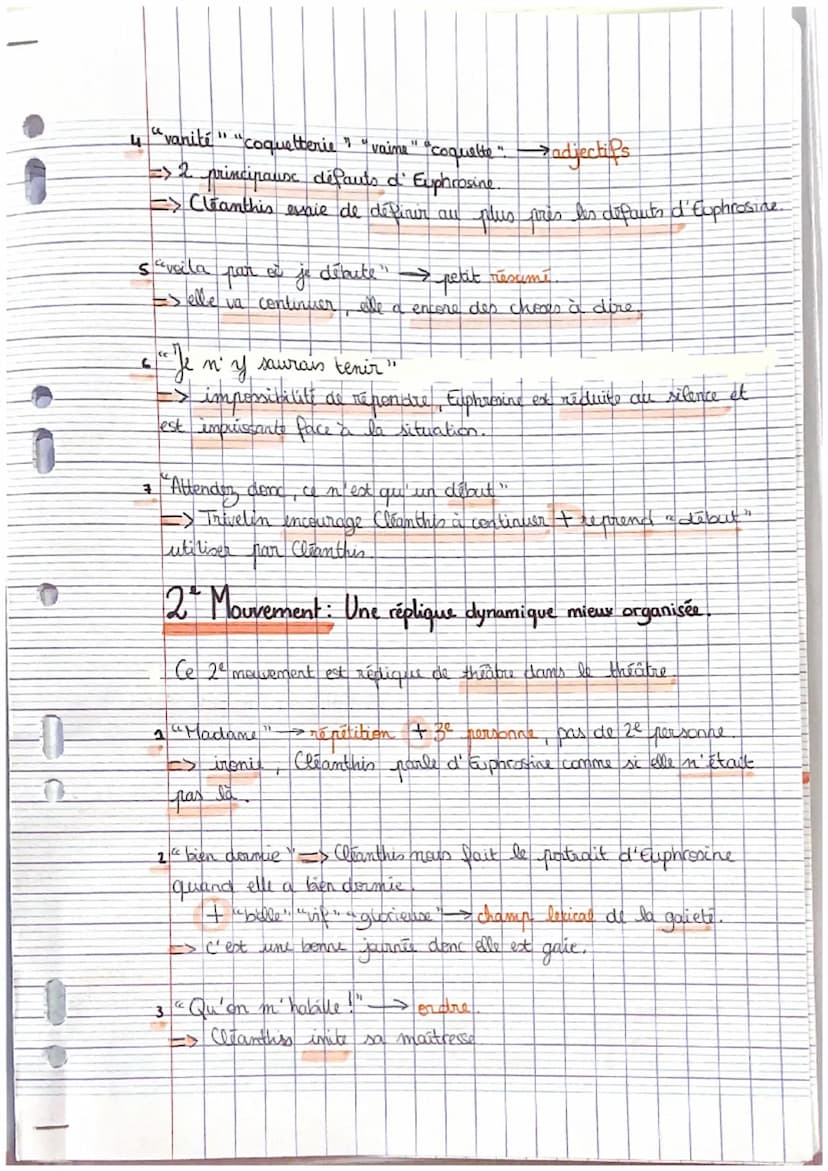 4 "vanité" "coquetterie" "vaine" "coquette". → adjectifs
=> 2 principaux défauts d'Euphrosine.
=> Cléanthis essaie de définir au plus près les défauts d'Euphrosine.
5 "voila par où je débute" → petit résumé.
=> elle va continuer, elle a encore des choses à dire.
6 "Je n'y saurais tenir"
=> impossibilité de répondre, Euphrosine est réduite au silence et
est impuissante face à la situation.
7 "Attendez donc, ce n'est qu'un début"
=> Trivelin encourage Cléanthis à continuer + reprend "début"
utiliser par Cléanthis.
2e Mouvement : Une réplique dynamique mieux organisée.
Ce 2e mouvement est réplique de théâtre dans le théâtre
1 "Madame" → répétition + 3e personne, pas de 2e personne.
=> ironie, Cléanthis parle d'Euphrosine comme si elle n'était
pas là.
2 "bien dormie" => Cléanthis nous fait le portrait d'Euphrosine
quand elle a bien dormie.
+ "belle" "vif" "glorieuse" → champ lexical de la gaieté.
=> C'est une bonne journée donc elle est gaie.
3 "Qu'on m'habille !" → ordre.
=> Cléanthis imite sa maîtresse